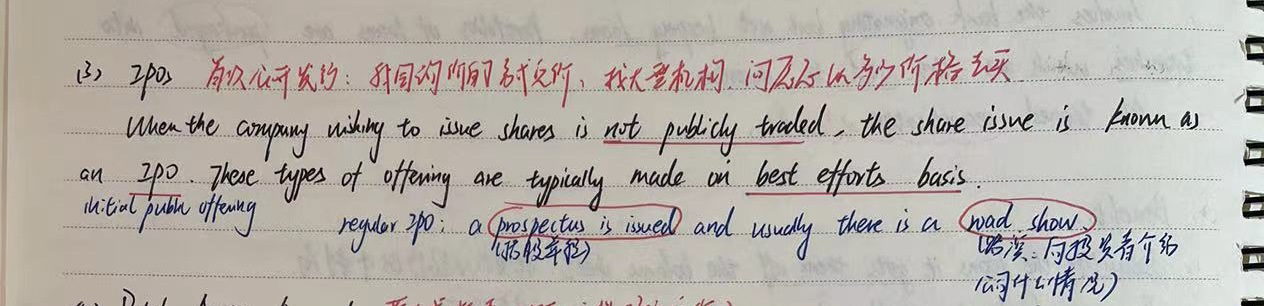 (3) IPOs 首次公开发行: 我国的 阶段 式交价、找大型机构、问愿不愿以多少价格去买
When the company wishing to issue shares is not publicly traded, the share issue is known as
an IPO. These types of offering are typically made on best efforts basis.
initial public offering regular IPO: a prospectus is issued and usually there is a road show.
(招股章程) (路演: 向投资者介绍
公司什么情况)